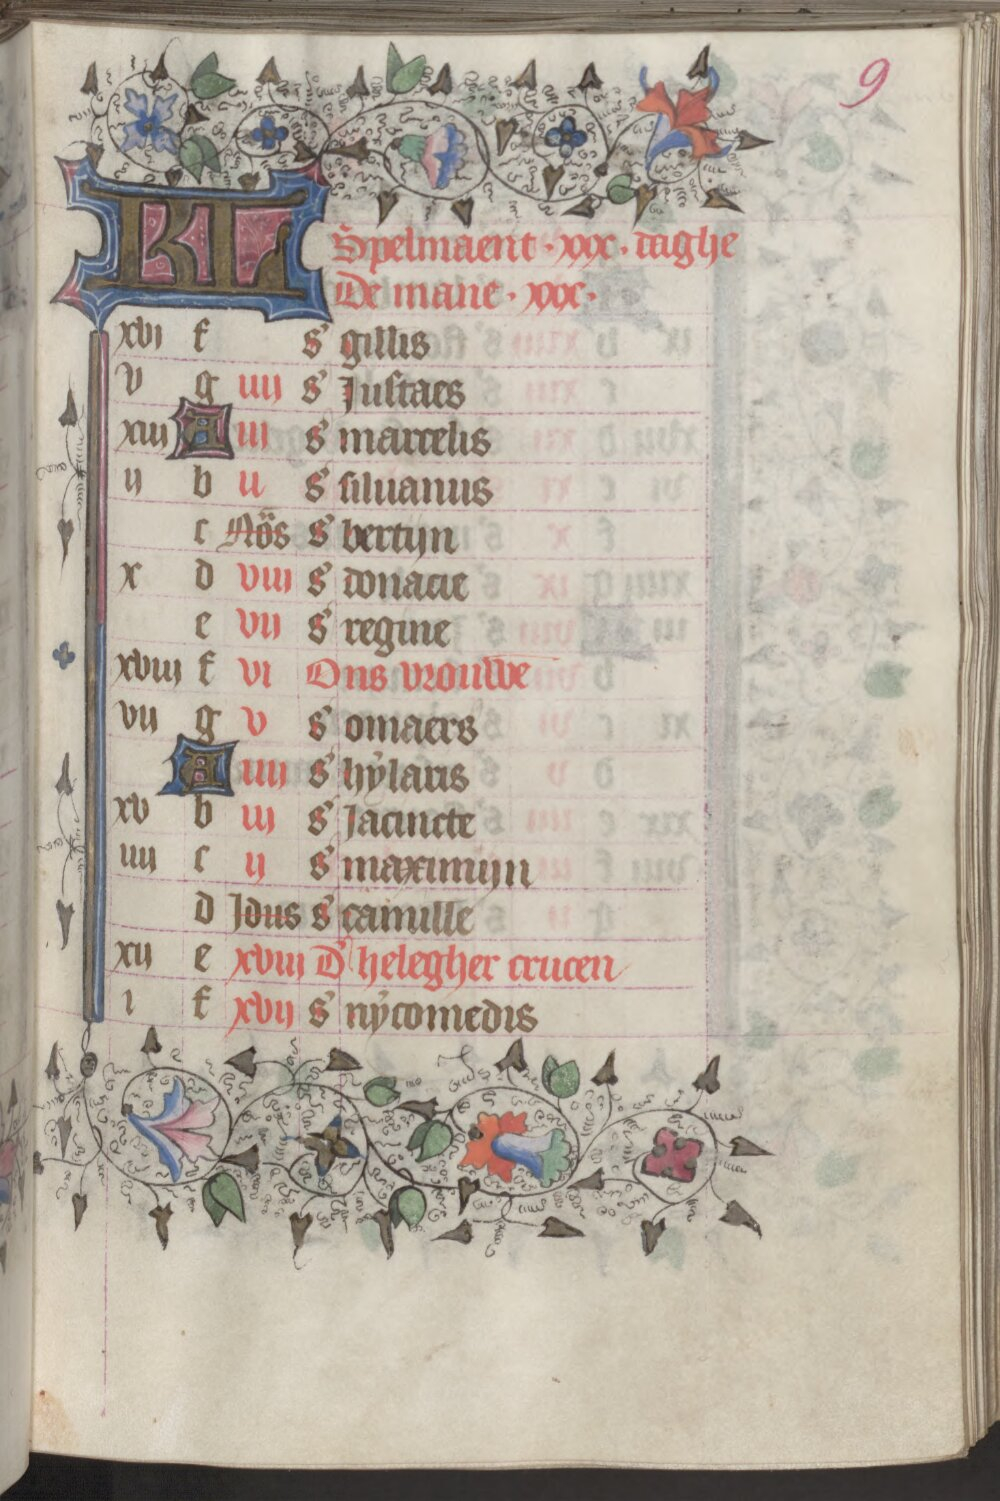 9
KL Spelmaent · xxx · daghe
De mane · xxx ·
xvi f s' gillis
v g iiii s' Justaes
xiii A iii s' marcelis
ii b ii s' siluanus
c Nōs s' bertijn
x d viii s' donacie
e vii s' regine
xviii f vi Ons vrouwe
vii g v s' omaers
A iiii s' hylaris
xv b iii s' Jacincte
iiii c ij s' maximijn
d Idus s' camille
xii e xviii D' helegher crucen
i f xvii s' nycomedis